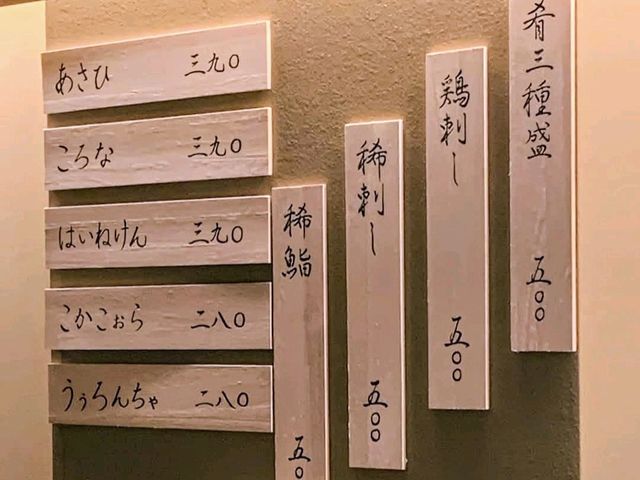 肴三種盛 五〇〇
鶏刺し 五〇〇
稀刺し 五〇〇
稀鮨 五〇
あさひ 三九〇
ころな 三九〇
はいねけん 三九〇
こかこぉら 二八〇
うぅろんちゃ 二八〇